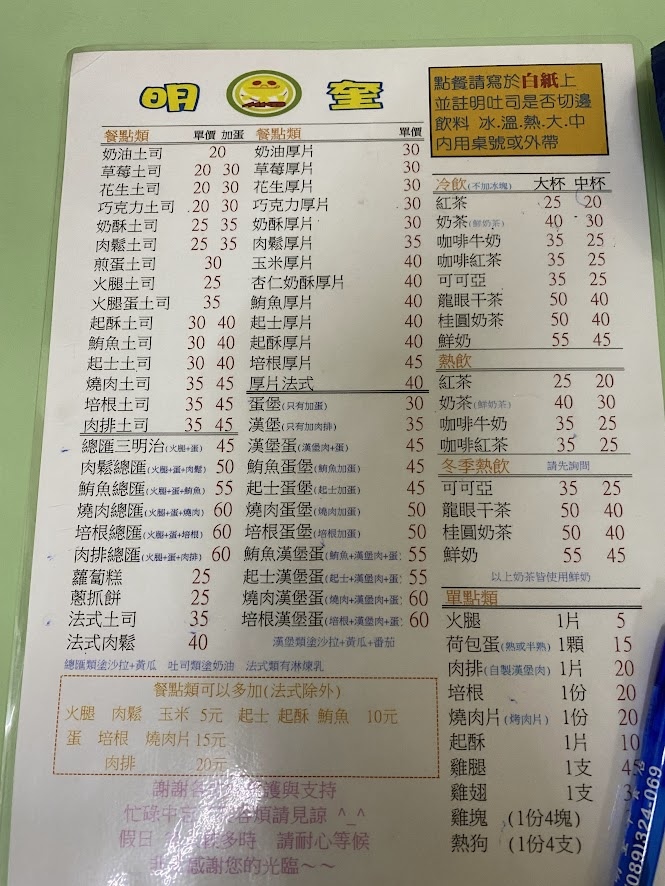 明 奎
點餐請寫於白紙上
並註明吐司是否切邊
飲料 冰.溫.熱.大.中
內用桌號或外帶
餐點類 單價 加蛋
奶油土司 20
草莓土司 20 30
花生土司 20 30
巧克力土司 20 30
奶酥土司 25 35
肉鬆土司 25 35
煎蛋土司 30
火腿土司 25
火腿蛋土司 35
起酥土司 30 40
鮪魚土司 30 40
起士土司 30 40
燒肉土司 35 45
培根土司 35 45
肉排土司 35 45
總匯三明治(火腿+蛋) 45
肉鬆總匯(火腿+蛋+肉鬆) 50
鮪魚總匯(火腿+蛋+鮪魚) 55
燒肉總匯(火腿+蛋+燒肉) 60
培根總匯(火腿+蛋+培根) 60
肉排總匯(火腿+蛋+肉排) 60
蘿蔔糕 25
蔥抓餅 25
法式土司 35
法式肉鬆 40
餐點類 單價
奶油厚片 30
草莓厚片 30
花生厚片 30
巧克力厚片 30
奶酥厚片 30
肉鬆厚片 35
玉米厚片 40
杏仁奶酥厚片 40
鮪魚厚片 40
起士厚片 40
起酥厚片 40
培根厚片 45
厚片法式 40
蛋堡(只有加蛋) 30
漢堡(只有加肉排) 35
漢堡蛋(漢堡肉+蛋) 45
鮪魚蛋堡(鮪魚加蛋) 45
起士蛋堡(起士加蛋) 45
燒肉蛋堡(燒肉加蛋) 50
培根蛋堡(培根加蛋) 50
鮪魚漢堡蛋(鮪魚+漢堡肉+蛋) 55
起士漢堡蛋(起士+漢堡肉+蛋) 55
燒肉漢堡蛋(燒肉+漢堡肉+蛋) 60
培根漢堡蛋(培根+漢堡肉+蛋) 60
漢堡類塗沙拉+黃瓜+番茄
總匯類塗沙拉+黃瓜 吐司類塗奶油 法式類有淋煉乳
餐點類可以多加(法式除外)
火腿 肉鬆 玉米 5元 起士 起酥 鮪魚 10元
蛋 培根 燒肉片15元
肉排 20元
謝謝 護與支持
忙碌中 煩請見諒 ^_^
假日 較多時 請耐心等候
感謝您的光臨~~
冷飲(不加冰塊) 大杯 中杯
紅茶 25 20
奶茶(鮮奶茶) 40 30
咖啡牛奶 35 25
咖啡紅茶 35 25
可可亞 35 25
龍眼干茶 50 40
桂圓奶茶 50 40
鮮奶 55 45
熱飲
紅茶 25 20
奶茶(鮮奶茶) 40 30
咖啡牛奶 35 25
咖啡紅茶 35 25
冬季熱飲 請先詢問
可可亞 35 25
龍眼干茶 50 40
桂圓奶茶 50 40
鮮奶 55 45
以上奶茶皆使用鮮奶
單點類
火腿 1片 5
荷包蛋(熟或半熟) 1顆 15
肉排(自製漢堡肉) 1片 20
培根 1份 20
燒肉片(烤肉片) 1份 20
起酥 1片 10
雞腿 1支
雞翅 1支
雞塊 (1份4塊)
熱狗 (1份4支)
(089)324-069